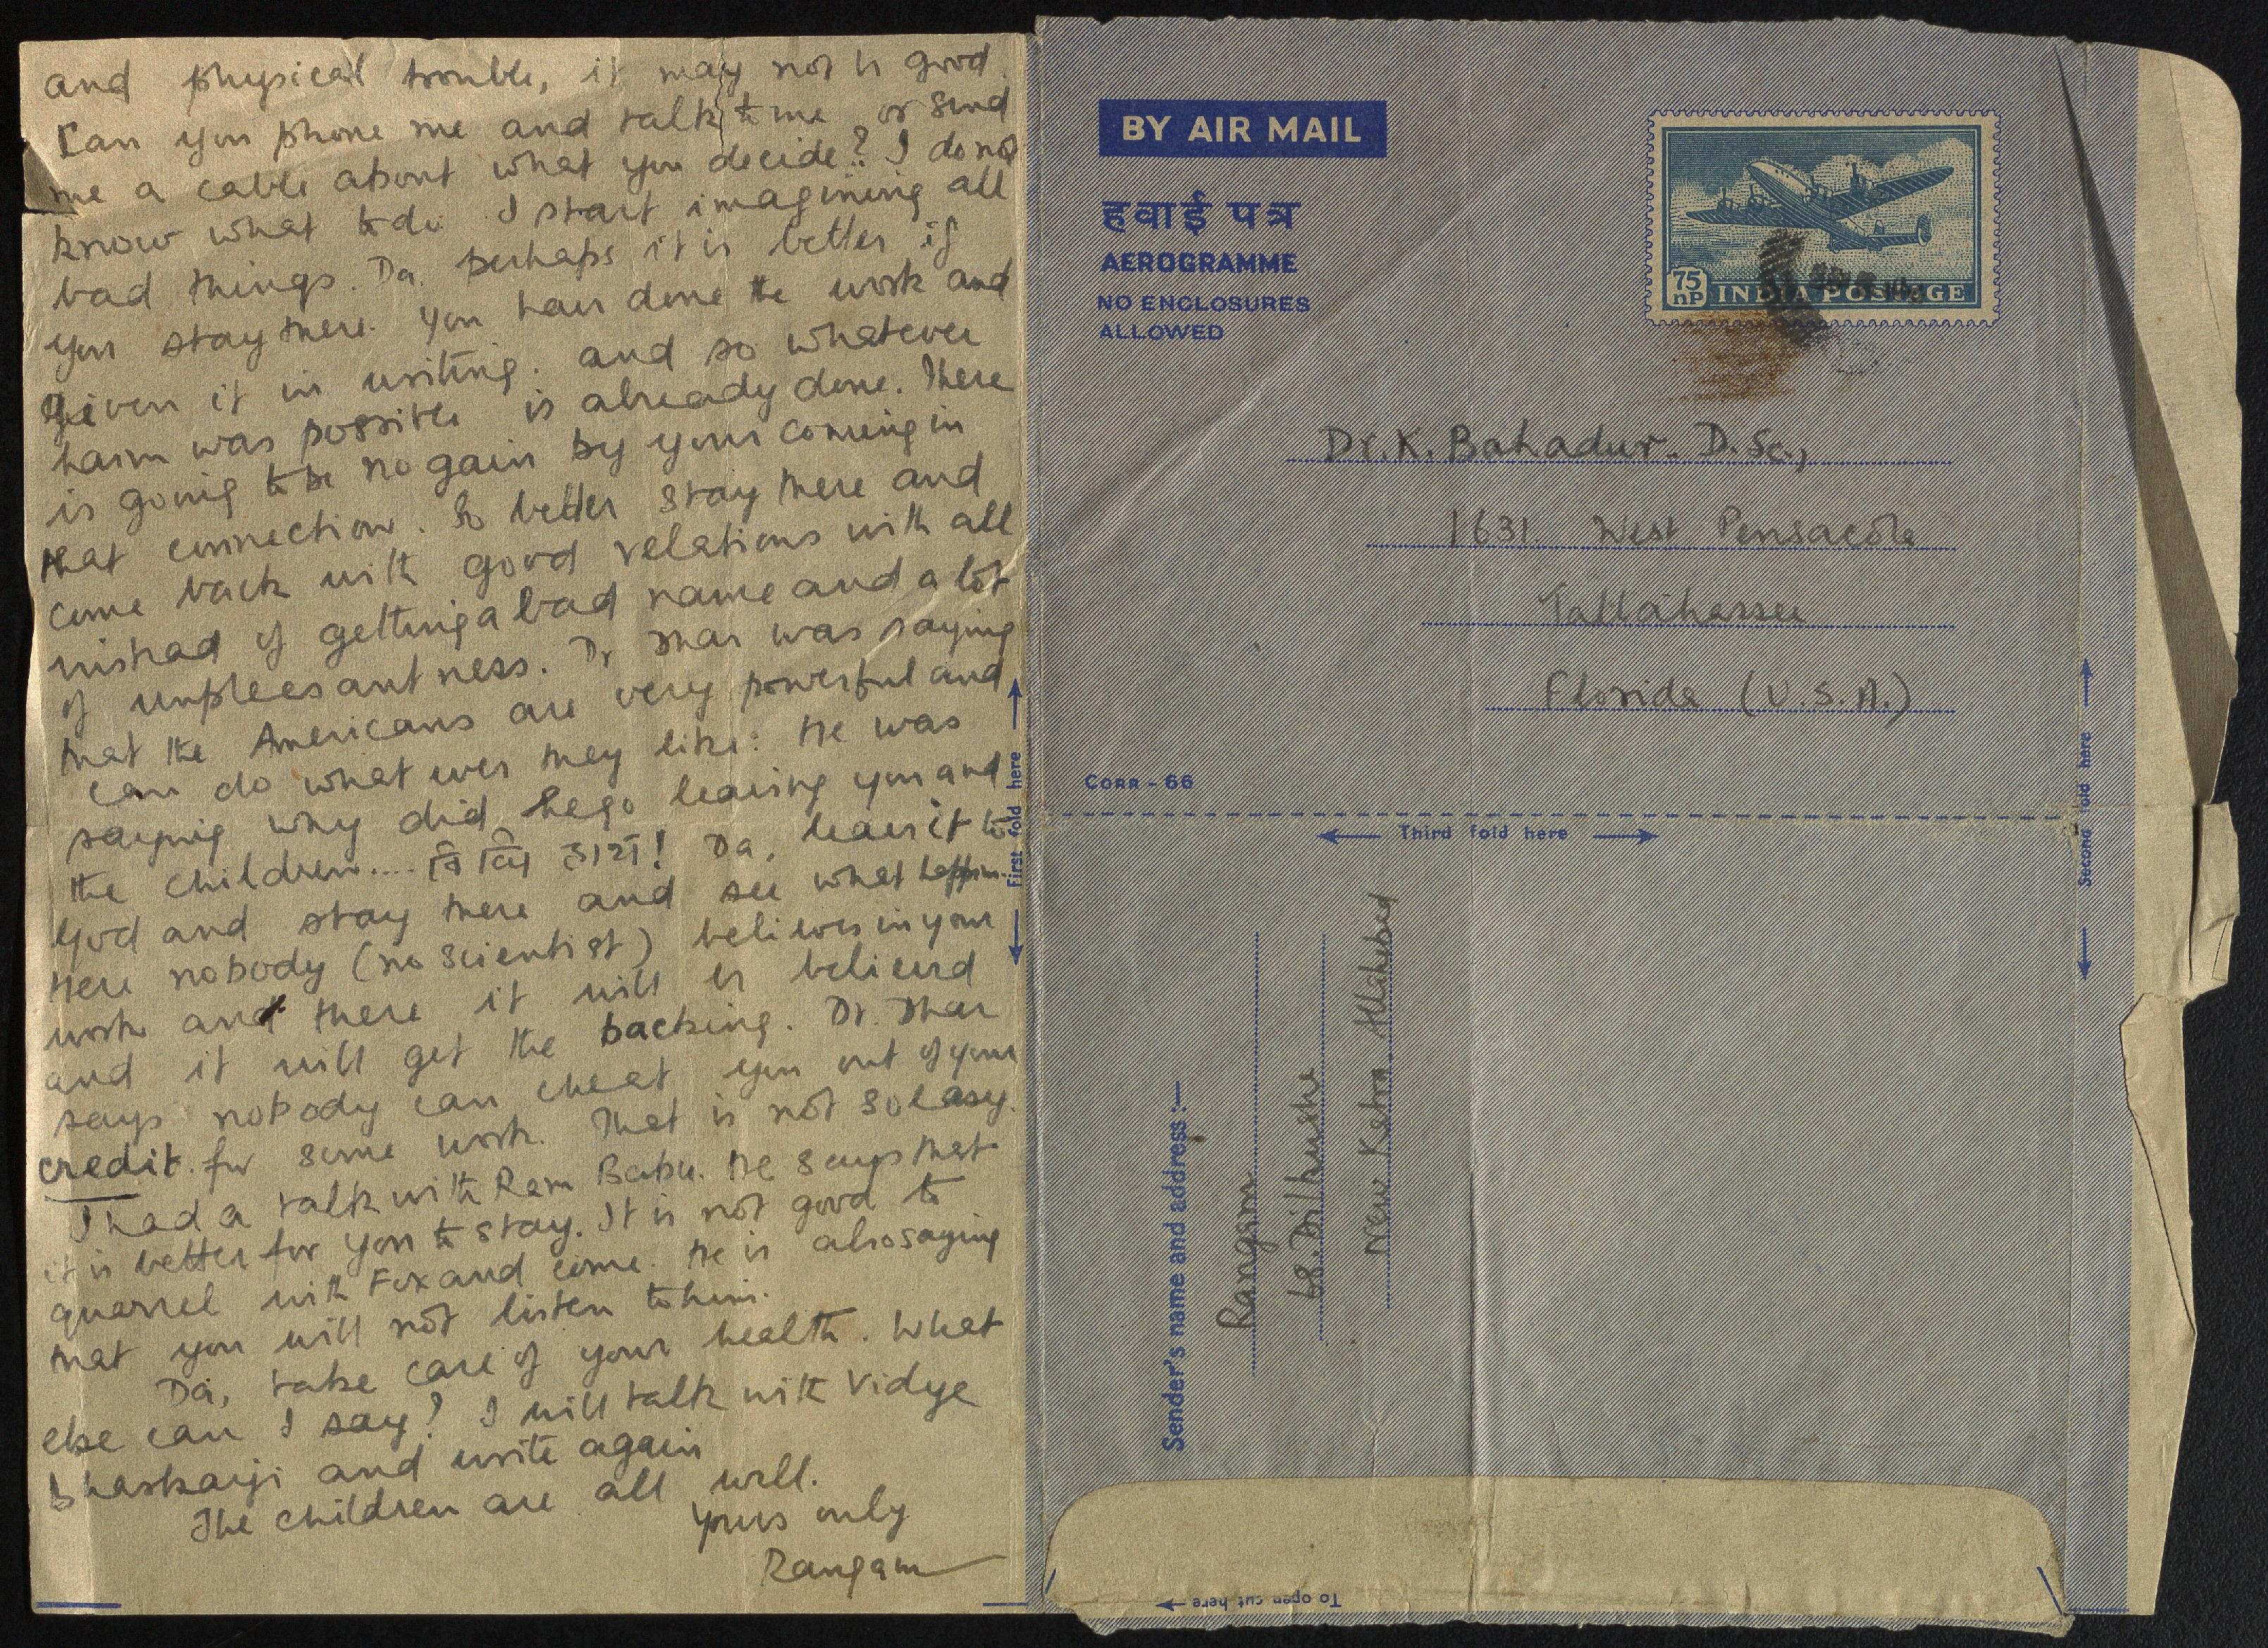 and physical trouble, it may not be good.
Can you phone me and talk to me or send
me a cable about what you decide? I do not
know what to do. I start imagining all
bad things. Da. perhaps it is better if
you stay there. You have done the work and
given it in writing. and so whatever
harm was possible is already done. There
is going to be no gain by your coming in
that connection. So better stay there and
come back with good relations with all
instead of getting a bad name and a lot
of unpleesantness. Dr Dhar was saying
that the Americans are very powerful and
can do what ever they like. He was
saying why did he go leaving you and
the children....
Da, leave it to
God and stay there and see what happens.
Here nobody (no scientist) believes in your
work and there it will be believed
and it will get the backing. Dr. Dhar
says nobody can cheat you out of your
credit. for some work. That is not so easy.
I had a talk with Ram Babu. He says that
it is better for you to stay. It is not good to
quarrel with Fox and come. He is also saying
that you will not listen to him.
Da, take care of your health. What
else can I say? I will talk with Vidya
bhaskarji and write again
The children are all well.
Yours only
Rangam
First fold here
BY AIR MAIL
हवाई पत्र
AEROGRAMME
NO ENCLOSURES
ALLOWED
75
nP
INDIA POSTAGE
Dr. K. Bahadur. D.Sc.,
1631. West Pensacola
Tallahassee
Florida (U.S.A.)
CORR-66
Third fold here
Second fold here
Sender's name and address :—
Rangam
68. Dilkusha
New Katra Allahabad
To open cut here